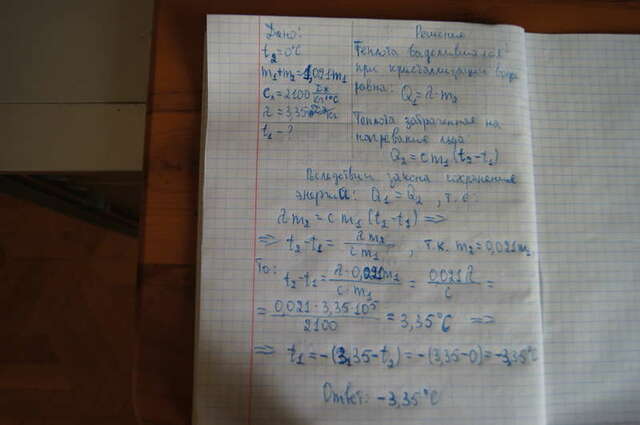 Дано:
t₂=0°C
m₁+m₂=1,021m₁
c₁=2100 Дж/кг°C
λ=3,35
t₁-?
Решение
Теплота выделившаяся
при кристаллизации воды
равна: Q₁=λ·m₂
Теплота затраченная на
нагревание льда
Q₂=cm₁(t₂-t₁)
Вследствии закона сохранения
энергии: Q₁=Q₂, т.е.
λm₂=cm₁(t₂-t₁) =>
=> t₂-t₁= λm₂/cm₁, т.к. m₂=0,021m₁
То: t₂-t₁= λ·0,021m₁/c·m₁ = 0,021λ/c =
= 0,021·3,35·10⁵/2100 = 3,35°C =>
=> t₁=-(3,35-t₂)=-(3,35-0)=-3,35°C
Ответ: -3,35°C